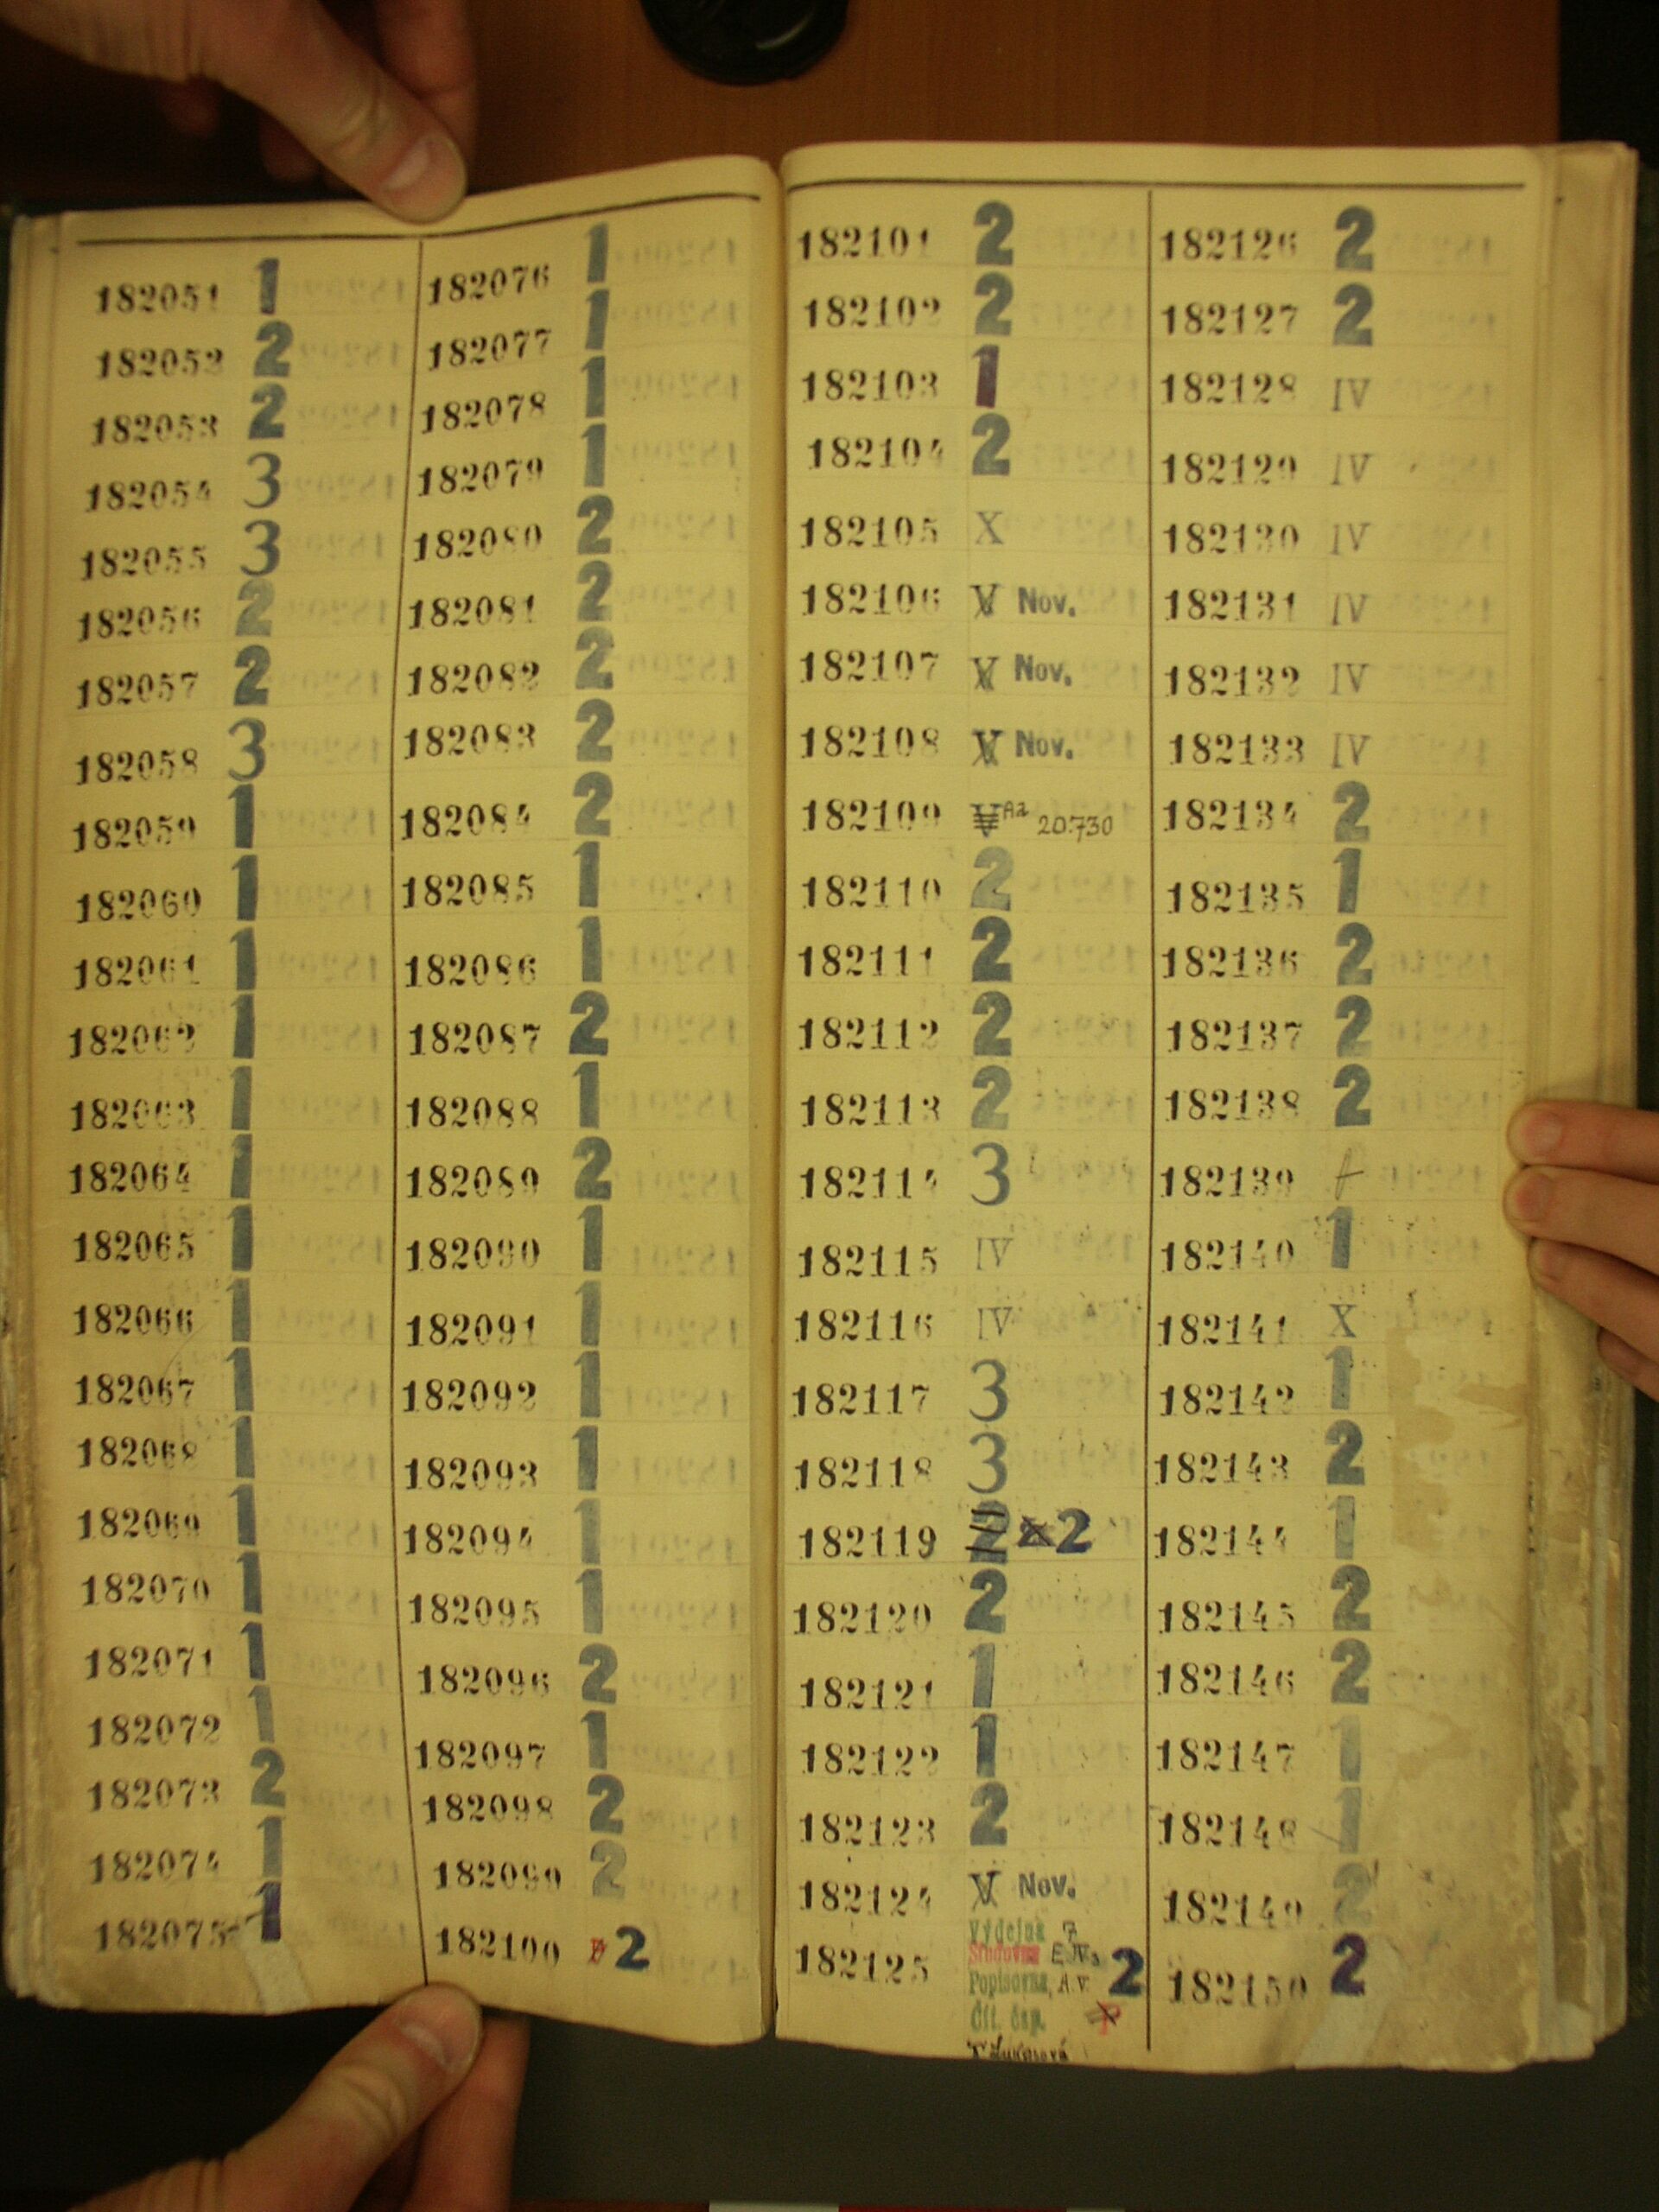 182051 1
182052 2
182053 2
182054 3
182055 3
182056 2
182057 2
182058 3
182059 1
182060 1
182061 1
182062 1
182063 1
182064 1
182065 1
182066 1
182067 1
182068 1
182069 1
182070 1
182071 1
182072 1
182073 2
182074 1
182075 1
182076 1
182077 1
182078 1
182079 1
182080 2
182081 2
182082 2
182083 2
182084 2
182085 1
182086 1
182087 2
182088 1
182089 2
182090 1
182091 1
182092 1
182093 1
182094 1
182095 1
182096 2
182097 1
182098 2
182099 2
182100 2
182101 2
182102 2
182103 1
182104 2
182105 X
182106 V Nov.
182107 V Nov.
182108 V Nov.
182109 V A2 20.730
182110 2
182111 2
182112 2
182113 2
182114 3
182115 IV
182116 IV
182117 3
182118 3
182119 2 2
182120 2
182121 1
182122 1
182123 2
182124 V Nov.
Výdejna 7
182125 Studovna E.IV. 2
Popisovna, A.V.
Čít. čsp. P
182126 2
182127 2
182128 IV
182129 IV
182130 IV
182131 IV
182132 IV
182133 IV
182134 2
182135 1
182136 2
182137 2
182138 2
182139
182140 1
182141 X
182142 1
182143 2
182144 1
182145 2
182146 2
182147 1
182148 1
182149 2
182150 2